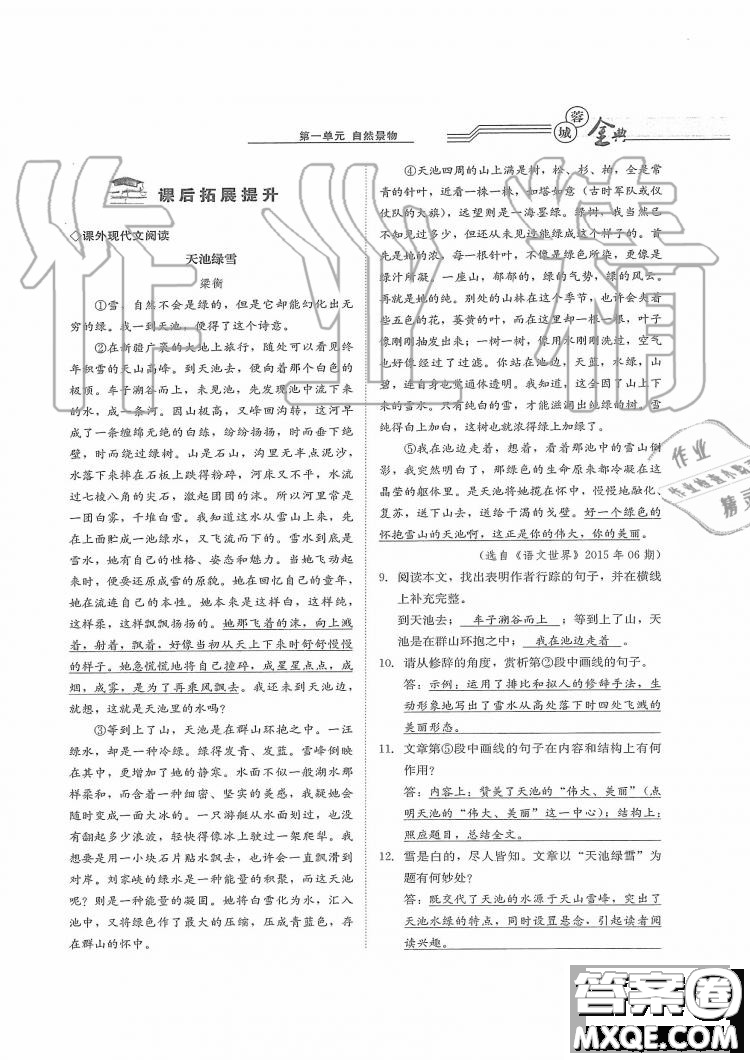 第一单元 自然景物
蓉
城
金典
课后拓展提升
◇课外现代文阅读
天池绿雪
梁衡
①雪，自然不会是绿的，但是它却能幻化出无
穷的绿。我一到天池，便得了这个诗意。
②在新疆广袤的大地上旅行，随处可以看见终
年积雪的天山高峰。到天池去，便向着那个白色的
极顶。车子溯谷而上，未见池，先发现池中流下来
的水，成一条河。因山极高，又峰回沟转，这河早
成了一条缠绵无绝的白练，纷纷扬扬，时而垂下绝
壁，时而绕过绿树。山是石山，沟里无半点泥沙，
水落下来摔在石板上跌得粉碎，河床又不平，水流
过七棱八角的尖石，激起团团的沫。所以河里常是
一团白雾，千堆白雪。我知道这水从雪山上来，先
在上面贮成一池绿水，又飞流而下的。雪水到底是
雪水，她有自己的性格、姿态和魅力。当她流动起
来时，便要还原成雪的原貌。她在回忆自己的童年，
她在流连自己的本性。她本来是这样白，这样纯，
这样柔，这样飘飘扬扬的。她那飞着的沫，向上溅
着，射着，飘着，好像当初从天上下来时舒舒慢慢
的样子。她急慌慌地将自己撞碎，成星星点点，成
烟，成雾，是为了再乘风飘去。我还未到天池边，
就想，这就是天池里的水吗？
③等到上了山，天池是在群山环抱之中。一汪
绿水，却是一种冷绿。绿得发青、发蓝。雪峰倒映
在其中，更增加了她的静寒。水面不似一般湖水那
样柔和，而含着一种细密、坚实的美感，我疑她会
随时变成一面大冰的。一只游艇从水面划过，也没
有翻起多少浪波，轻快得像冰上驶过一架爬犁。我
想要是用一小块石片贴水飘去，也许会一直飘滑到
对岸。刘家峡的绿水是一种能量的积聚，而这天池
呢？则是一种能量的凝固。她将白雪化为水，汇入
池中，又将绿色作了最大的压缩，压成青蓝色，存
在群山的怀中。
④天池四周的山上满是树，杨、松、柏，全是常
青的针叶，近看一株一株，如塔如蠹（古时军队或仪
仗队的大旗），远望则是一海墨绿。绿树，我当然已
不知见过多少，但还从未见过能绿成这个样子的。首
先是她的浓，每一根针叶，不像是绿色所染，更像是
绿汁所凝。一座山，郁郁的，绿的气势，绿的风云。
再就是她的纯。别处的山林在这个季节，也许会夹着
些五色的花，萎黄的叶，而在这里却一根一根，叶子
像刚刚抽发出来；一树一树，像用水刚刚洗过，空气
也好像经过了过滤。你站在池边，天蓝，水绿，山
碧，连自身也觉通体透明。我知道，这全因了山上下
来的雪水。只有纯白的雪，才能滋润出纯绿的树。雪
纯得白上加白，这树也就浓得绿上加绿了。
⑤我在池边走着，想着，看着那池中的雪山倒
影，我突然明白了，那绿色的生命原来都冷凝在这
晶莹的躯体里。是天池将她揽在怀中，慢慢地融化、
复苏，送下山去，送给干渴的戈壁。好一个绿色的
怀抱雪山的天池啊，这正是你的伟大，你的美丽。
（选自《语文世界》2015年06期）
9. 阅读本文，找出表明作者行踪的句子，并在横线
上补充完整。
到天池去； 车子溯谷而上 ；等到上了山，天
池是在群山环抱之中； 我在池边走着 。
10. 请从修辞的角度，赏析第②段中画线的句子。
答：示例：运用了排比和拟人的修辞手法，生
动形象地写出了雪水从高处落下时四处飞溅的
美丽形态。
11. 文章第⑤段中画线的句子在内容和结构上有何
作用？
答：内容上：赞美了天池的“伟大、美丽”（点
明天池的“伟大、美丽”这一中心）；结构上：
照应题目，总结全文。
12. 雪是白的，尽人皆知。文章以“天池绿雪”为
题有何妙处？
答：既交代了天池的水源于天山雪峰，突出了
天池水绿的特点，同时设置悬念，引起读者阅
读兴趣。
作业精
作业
答案圈
MXQE.COM